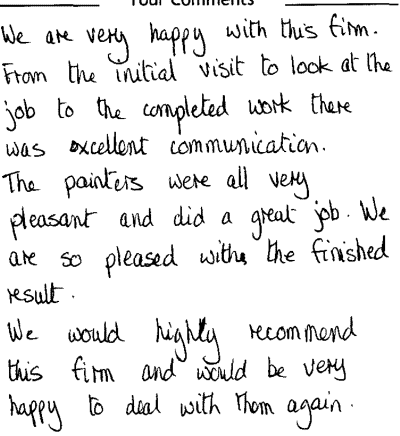 Your Comments
We are very happy with this firm.
From the initial visit to look at the
job to the completed work there
was excellent communication.
The painters were all very
pleasant and did a great job. We
are so pleased with the finished
result.
We would highly recommend
this firm and would be very
happy to deal with them again.